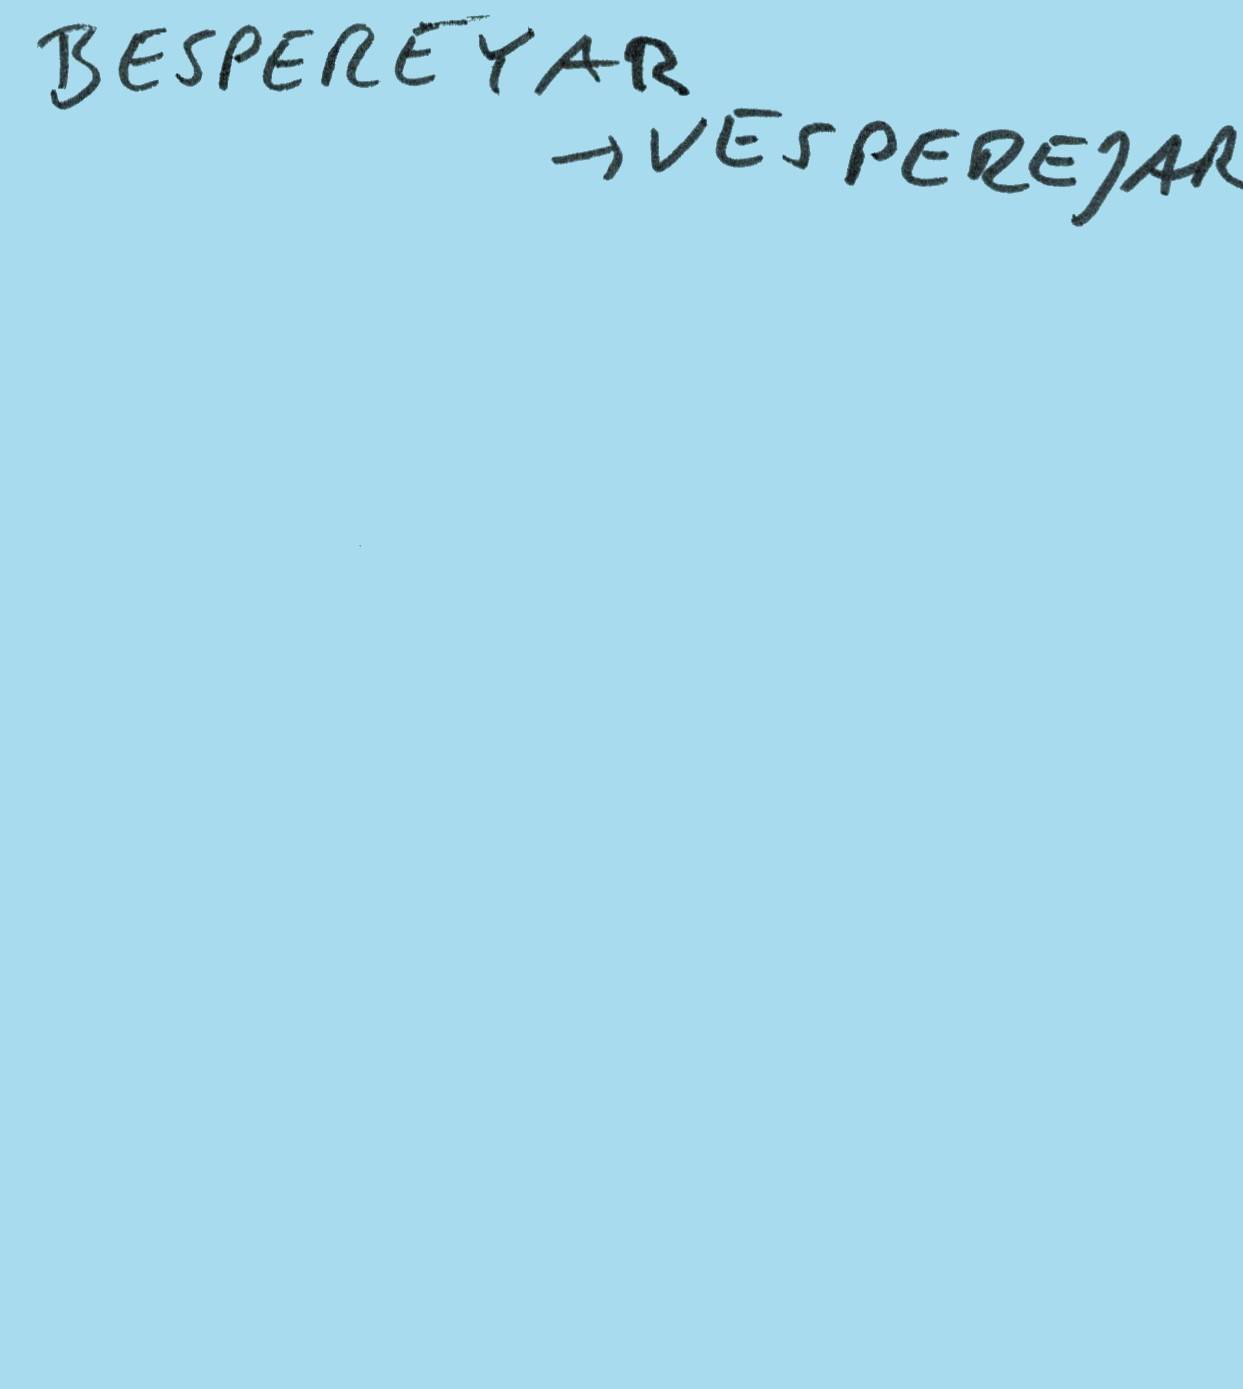 BESPEREYAR
→ VESPEREJAR